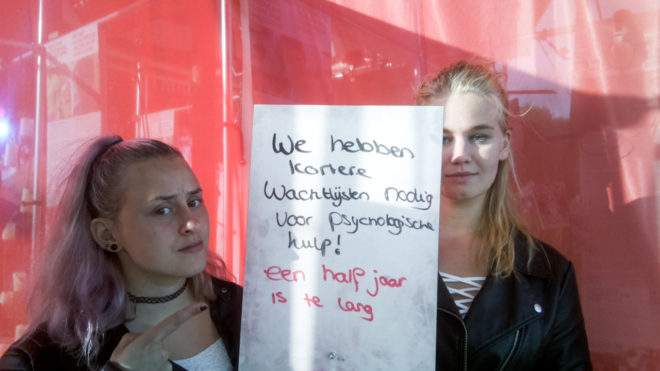 We hebben
kortere
Wachtlijsten nodig
voor psychologische
hulp!
een half jaar
is te lang